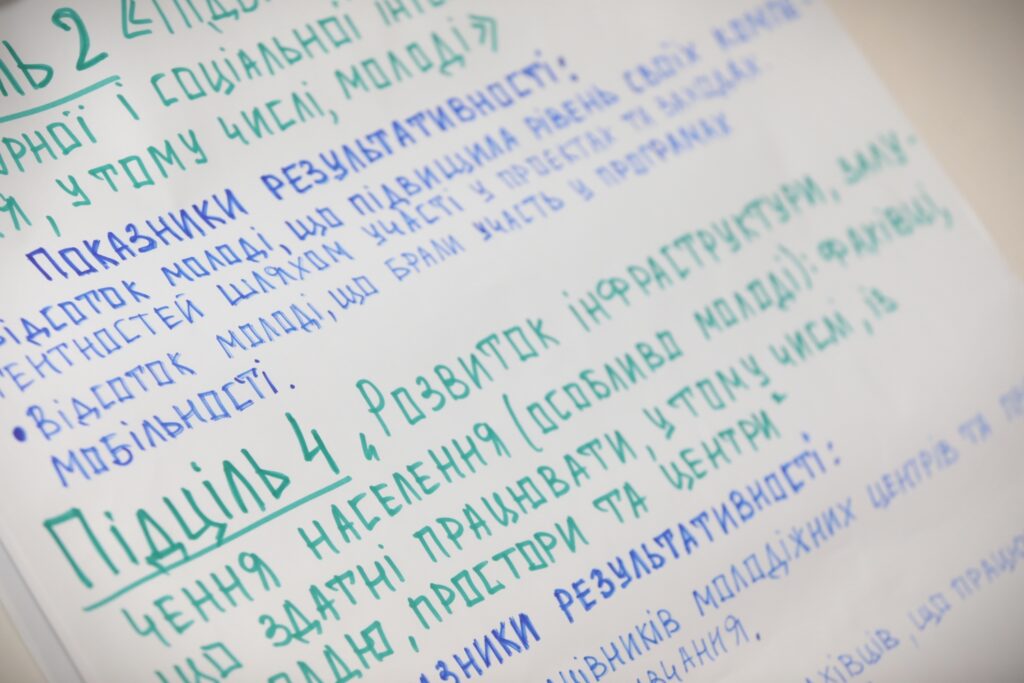 ль 2 «Підв
орної і соціальної інте
я, у тому числі, молоді»
Показники результативності:
відсоток молоді, що підвищила рівень своїх компе-
тентностей шляхом участі у проектах та заходах.
• Відсоток молоді, що брали участь у програмах
мобільності.
Підціль 4 „Розвиток інфраструктури, залу-
чення населення (особливо молоді): фахівці,
що здатні працювати, у тому числі, із
лоддю, простори та центри"
азники результативності:
цівників молодіжних центрів та п
вчання.
ахівців, що працю